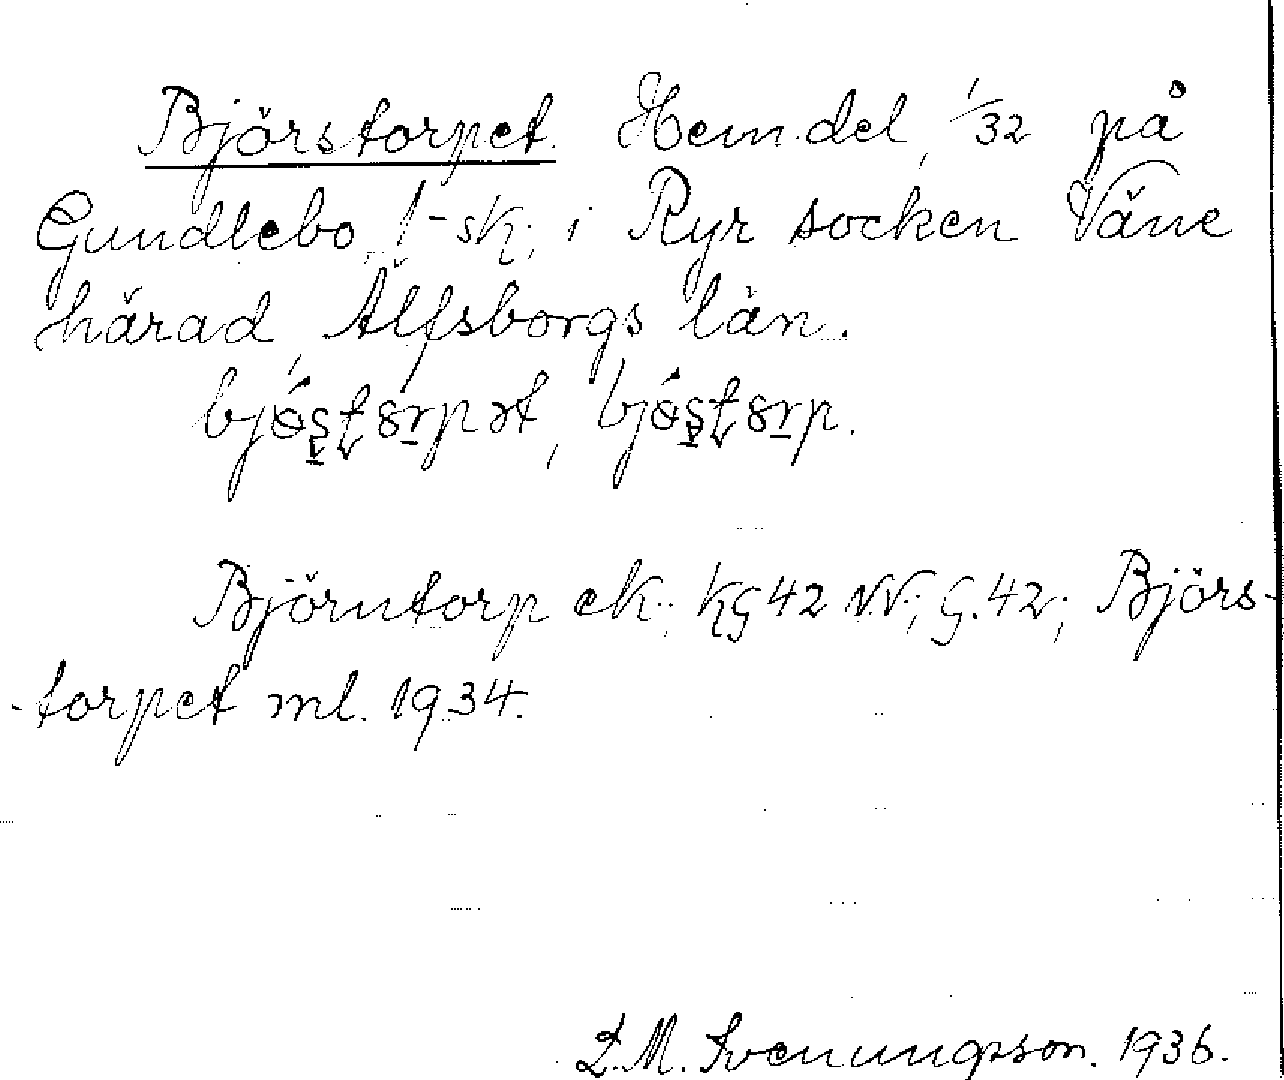 Björstorpet. Hemdel, 1/32 på
Gundlebo, 1-sk; i Ryr socken Väne
härad, Älfsborgs län.
Björntorp ek; kg 42 NV; G. 42; Björs-
-torpet ml. 1934.
L.M. Svenungsson. 1936.